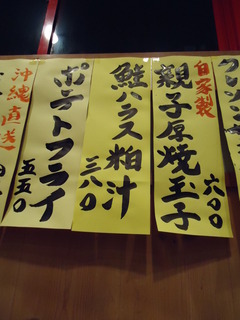 自家製
親子厚焼玉子
六〇〇
鮭ハラス粕汁
三八〇
ポテトフライ
五五〇
沖縄直送